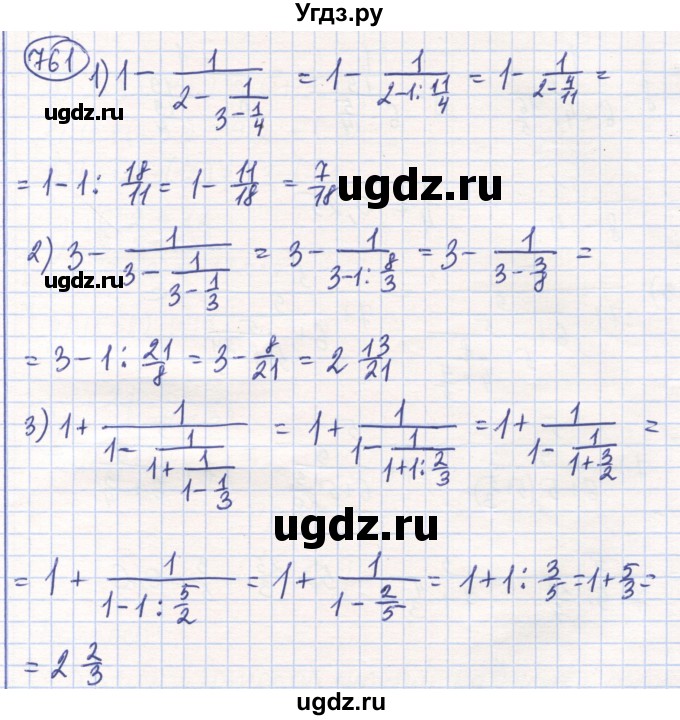 Угдз.ру
761 1) 1 - 1/(2 - 1/(3 - 1/4)) = 1 - 1/(2-1:11/4) = 1 - 1/(2-4/11) =
ugdz.ru
= 1-1: 18/11 = 1 - 11/18 = 7/18
ugdz.ru
2) 3 - 1/(3 - 1/(3 - 1/3)) = 3 - 1/(3-1:8/3) = 3 - 1/(3 - 3/8) =
ugdz.ru
= 3 - 1 : 21/8 = 3 - 8/21 = 2 13/21
3) 1 + 1/(1 - 1/(1 + 1/(1 - 1/3))) = 1 + 1/(1 - 1/(1+1:2/3)) = 1 + 1/(1 - 1/(1+3/2)) =
ugdz.ru
= 1 + 1/(1-1:5/2) = 1 + 1/(1 - 2/5) = 1+1: 3/5 = 1 + 5/3 =
ugdz.ru ugdz.ru
= 2 2/3
ugdz.ru